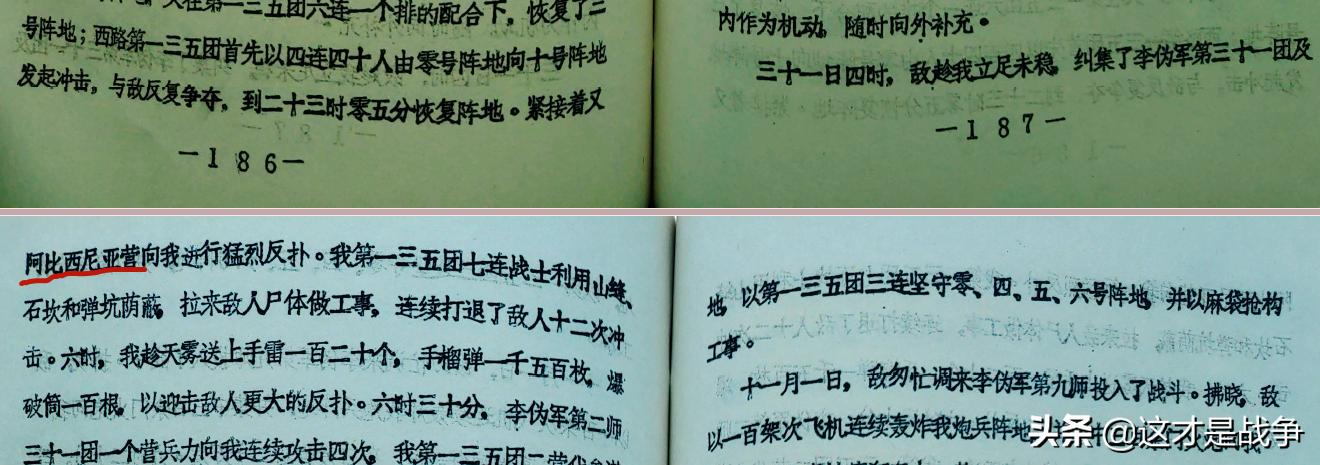 在第一三五团六连一个排的配合下，恢复了三
号阵地；西路第一三五团首先以四连四十人由零号阵地向十号阵地
发起冲击，与敌反复争夺，到二十三时零五分恢复阵地。紧接着又
—186—
内作为机动，随时向外补充。
三十一日四时，敌趁我立足未稳，纠集了李伪军第三十一团及
—187—
阿比西尼亚营向我进行猛烈反扑。我第一三五团七连战士利用山缝、
石坎和弹坑荫蔽，拉来敌人尸体做工事，连续打退了敌人十二次冲
击。六时，我趁天雾送上手雷一百二十个，手榴弹一千五百枚，爆
破筒一百根，以迎击敌人更大的反扑。六时三十分，李伪军第二师
三十一团一个营兵力向我连续攻击四次，我第一三五团二营代
地，以第一三五团三连坚守零、四、五、六号阵地，并以麻袋抢构
工事。
十一月一日，敌匆忙调来李伪军第九师投入了战斗。拂晓，敌
以一百架次飞机连续轰炸我炮兵阵地
头条 @这才是战争